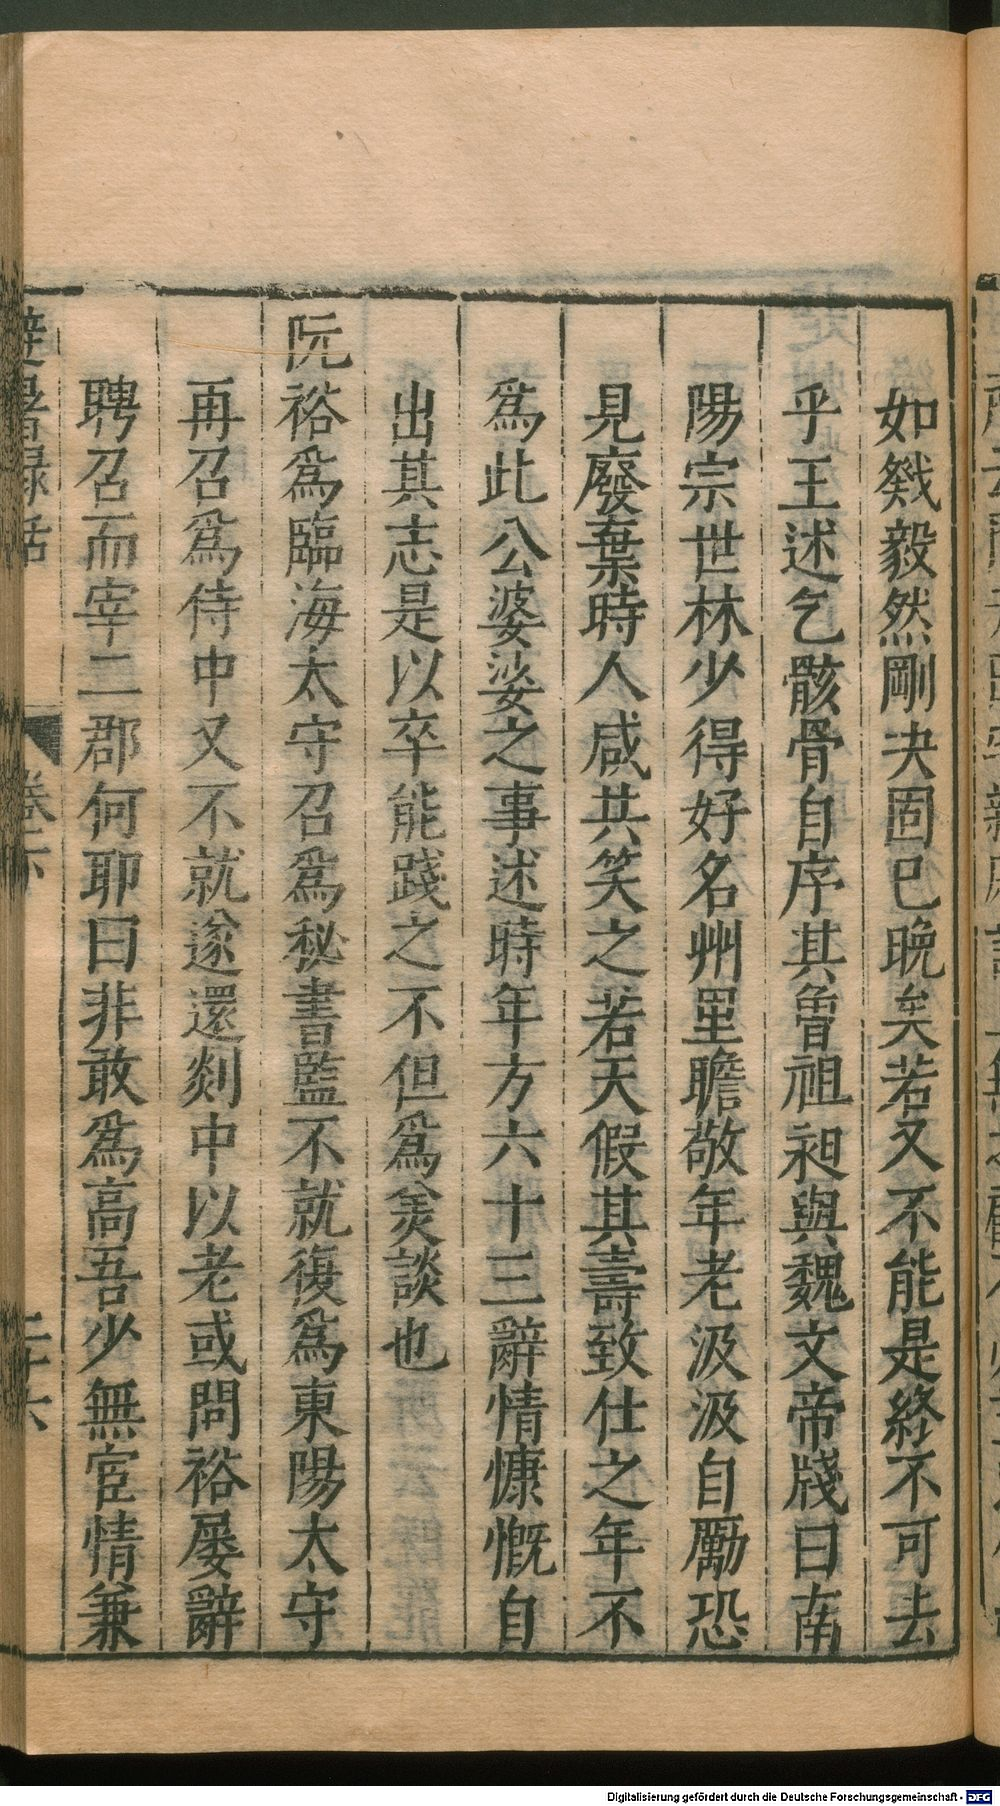 如戣毅然剛决固已晚矣若又不能是終不可去
乎王述乞骸骨自序其曾祖昶與魏文帝牋曰南
陽宗世林少得好名州里瞻敬年老汲汲自勵恐
見廢棄時人咸共笑之若天假其壽致仕之年不
爲此公婆娑之事述時年方六十三辭情慷慨自
出其志是以卒能踐之不但爲美談也
阮裕爲臨海太守召爲秘書監不就復爲東陽太守
再召爲侍中又不就遂還剡中以老或問裕屡辭
聘召而宰二郡何耶曰非敢爲高吾少無宦情兼
避暑録話
卷下
二十六
Digitalisierung gefördert durch die Deutsche Forschungsgemeinschaft - DFG